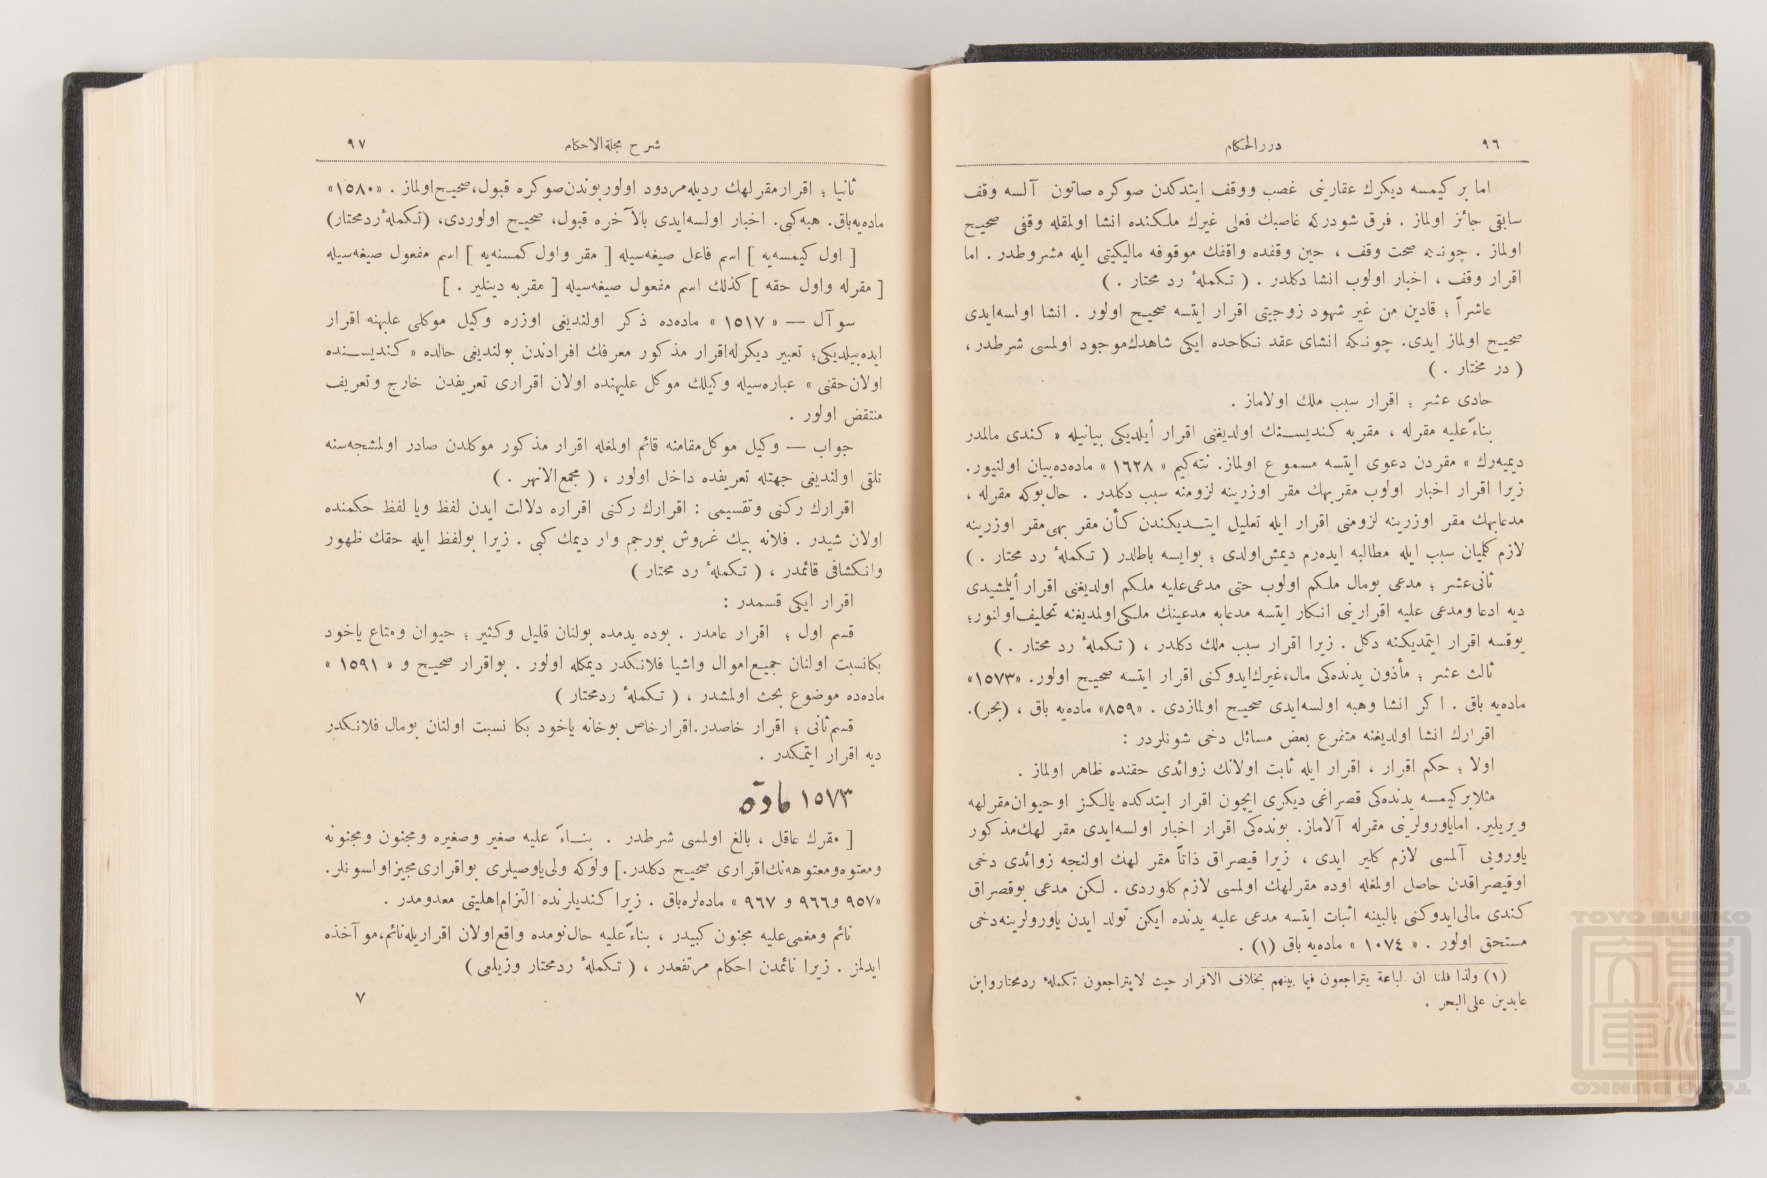 ٩٦
دررالحكام
اما بر كيمسه ديكرك عقارينى غصب ووقف ايتدكدن صوكره صاتون آلسه وقف
سابقى جائز اولماز . فرق شودركه غاصبك فعلى غيرك ملكنده انشا اولمقله وقفى صحيح
اولماز . چونكه صحت وقف ، حين وقفده واقفك موقوفه مالكيتى ايله مشروطدر . اما
اقرار وقف ، اخبار اولوب انشا دكلدر . ( تكملهٔ رد محتار . )
عاشراً ؛ قادين من غير شهود زوجيتى اقرار ايتسه صحيح اولور . انشا اولسه‌ايدى
صحيح اولماز ايدى. چونكه انشاى عقد نكاحده ايكى شاهدك موجود اولمسى شرطدر ،
( در مختار . )
حادى عشر ؛ اقرار سبب ملك اولاماز .
بناءً عليه مقرله ، مقربه كنديسنك اولديغنى اقرار أيلديكى بيانيله « كندى مالمدر
ديميه‌رك » مقردن دعوى ايتسه مسموع اولماز. نته‌كيم « ١٦٢٨ » ماده‌ده بيان اولنيور.
زيرا اقرار اخبار اولوب مقربهك مقر اوزرينه لزومنه سبب دكلدر . حال بوكه مقرله ،
مدعابهك مقر اوزرينه لزومنى اقرار ايله تعليل ايتديكندن كأن مقر بهى مقر اوزرينه
لازم كلميان سبب ايله مطالبه ايده‌رم ديمش اولدى ؛ بوايسه باطلدر ( تكملهٔ رد محتار . )
ثانى عشر ؛ مدعى بومال ملكم اولوب حتى مدعى عليه ملكم اولديغنى اقرار أيلمشيدى
ديه ادعا ومدعى عليه اقرارينى انكار ايتسه مدعابه مدعينك ملكى اولمديغنه تحليف اولنور؛
يوقسه اقرار ايتمديكنه دكل . زيرا اقرار سبب ملك دكلدر ، ( تكملهٔ رد محتار . )
ثالث عشر ؛ مأذون يدنده‌كى مال،غيرك ايدوكنى اقرار ايتسه صحيح اولور. «١٥٧٣»
ماده‌يه باق . اكر انشا وهبه اولسه‌ايدى صحيح اولمازدى . «٨٥٩» ماده‌يه باق ، (بحر).
اقرارك انشا اولديغنه متفرع بعض مسائل دخى شونلردر :
اولا ؛ حكم اقرار ، اقرار ايله ثابت اولانك زوائدى حقنده ظاهر اولماز .
مثلا بر كيمسه يدنده‌كى قصراغى ديكرى ايچون اقرار ايتدكده يالكز او حيوان مقرلهه
ويريلير. اما ياورولرينى مقرله آلاماز. بونده‌كى اقرار اخبار اولسه‌ايدى مقر لهك مذكور
ياورويى آلمسى لازم كلير ايدى ، زيرا قيصراق ذاتاً مقر لهك اولنجه زوائدى دخى
اوقيصراقدن حاصل اولمغله اوده مقرلهك اولمسى لازم كلوردى . لكن مدعى بوقصراق
كندى مالى ايدوكنى بالبينه اثبات ايتسه مدعى عليه يدنده ايكن تولد ايدن ياورولرينه دخى
مستحق اولور . « ١٠٧٤ » ماده‌يه باق (١) .
(١) ولذا قلنا ان لباعة يتراجعون فيما بينهم بخلاف الاقرار حيث لايتراجعون تكملهٔ ردمحتار وابن
عابدين على البحر .
شرح مجلة الاحكام
٩٧
ثانيا ؛ اقرار مقر لهك رديله مردود اولور بوندن صوكره قبول،صحيح اولماز . «١٥٨٠»
ماده‌يه باق. هبه كبى. اخبار اولسه‌ايدى بالآخره قبول، صحيح اولوردى، (تكملهٔ ردمحتار)
[ اول كيمسه‌يه ] اسم فاعل صيغه‌سيله [ مقر واول كمسنه‌يه ] اسم مفعول صيغه‌سيله
[ مقرله واول حقه ] كذلك اسم مفعول صيغه‌سيله [ مقربه دينلير . ]
سوآل — « ١٥١٧ » ماده‌ده ذكر اولنديغى اوزره وكيل موكلى عليهنه اقرار
ايده‌بيلديكى؛ تعبير ديكرله اقرار مذكور معرفك افرادندن بولنديغى حالده « كنديسنده
اولان حقنى » عباره‌سيله وكيلك موكل عليهنده اولان اقرارى تعريفدن خارج وتعريف
منتقض اولور .
جواب — وكيل موكل مقامنه قائم اولمغله اقرار مذكور موكلدن صادر اولمشجه‌سنه
تلقى اولنديغى جهتله تعريفده داخل اولور ، ( مجمع الانهر . )
اقرارك ركنى وتقسيمى : اقرارك ركنى اقراره دلالت ايدن لفظ ويا لفظ حكمنده
اولان شيدر . فلانه بيك غروش بورجم وار ديمك كبى . زيرا بولفظ ايله حقك ظهور
وانكشافى قائمدر ، ( تكملهٔ رد محتار )
اقرار ايكى قسمدر :
قسم اول ؛ اقرار عامدر . بوده يدمده بولنان قليل وكثير ؛ حيوان ومتاع ياخود
بكا نسبت اولنان جميع اموال واشيا فلانكدر ديمكله اولور . بواقرار صحيح و « ١٥٩١ »
ماده‌ده موضوع بحث اولمشدر ، ( تكملهٔ ردمحتار )
قسم ثانى ؛ اقرار خاصدر.اقرار خاص بوخانه ياخود بكا نسبت اولنان بومال فلانكدر
ديه اقرار ايتمكدر .
١٥٧٣ مادّه
[ مقرك عاقل ، بالغ اولمسى شرطدر . بناءً عليه صغير وصغيره ومجنون ومجنونه
ومعتوه ومعتوهه‌نك اقرارى صحيح دكلدر.] ولوكه ولى ياوصيلرى بواقرارى مجيز اولسونلر.
«٩٥٧ و٩٦٦ و ٩٦٧ » ماده‌لره باق . زيرا كنديلرنده التزام اهليتى معدومدر .
نائم ومغمى عليه مجنون كبيدر ، بناءً عليه حال نومده واقع اولان اقراريله نائم،موآخذه
ايدلمز . زيرا نائمدن احكام مرتفعدر ، ( تكملهٔ ردمحتار وزيلعى )
٧
TOYO BUNKO
TOYO BUNKO